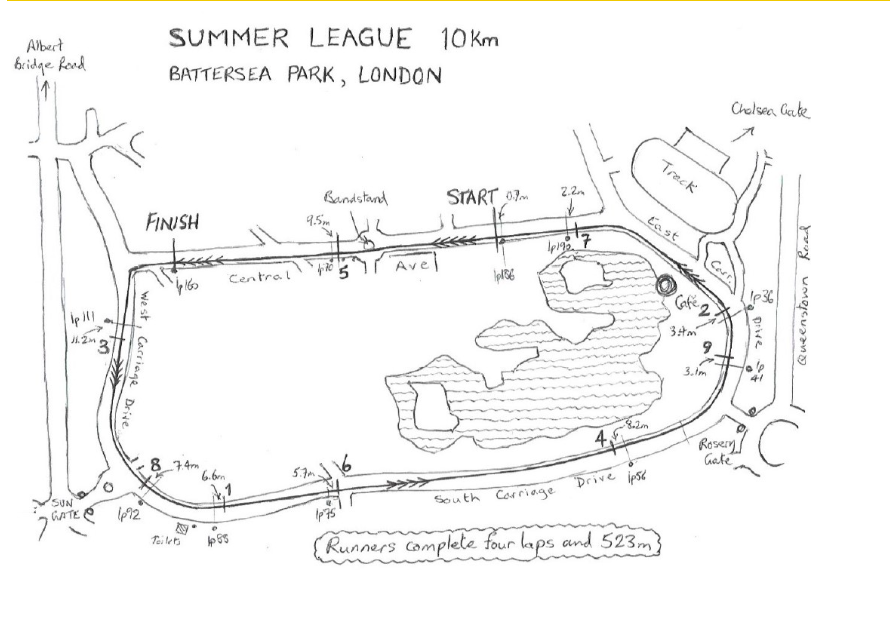 SUMMER LEAGUE 10Km
BATTERSEA PARK, LONDON
Albert
Bridge Road
Chelsea Gate
Track
Bandstand
START
0.7m
2.2m
FINISH
9.5m
lp160
Central
lp70
5
Ave
lp186
lp190
7
East
Carr.
Drive
Café
2
lp36
3.4m
9
3.1m
lp
41
Queenstown Road
lp111
11.2m
3
West Carriage Drive
8
7.4m
6.6m
1
5.7m
6
4
8.2m
lp56
Rosery
Gate
South Carriage Drive
SUN
GATE
lp92
Toilets
lp85
lp75
Runners complete four laps and 523m